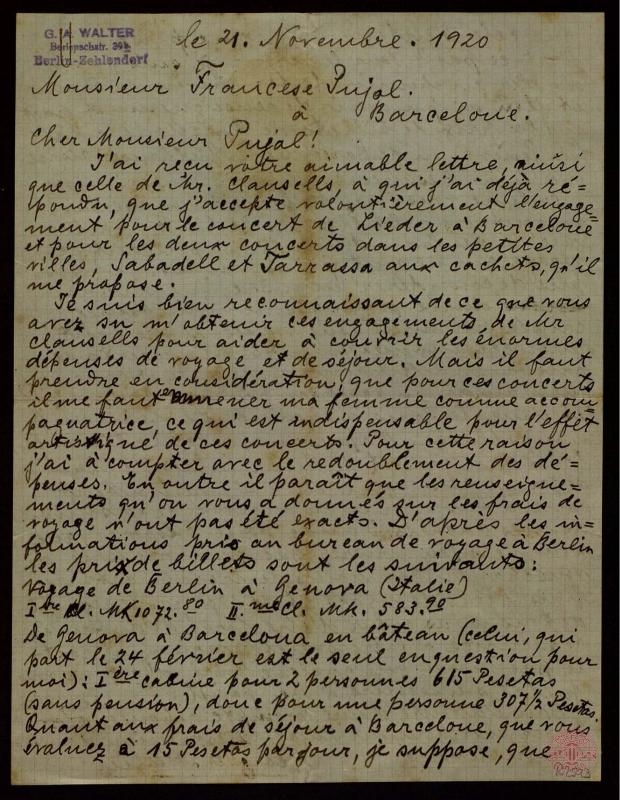 G. A. WALTER
Berlin-Zehlendorf
le 21. Novembre. 1920
Monsieur Francesc Pujol.
à
Barcelone.
Cher Monsieur Pujol!
J'ai reçu votre aimable lettre, ainsi
que celle de Mr. Clausells, à qui j'ai déjà ré=
pondu, que j'accepte volontièrement l'engage=
ment pour le concert de Lieder à Barcelone
et pour les deux concerts dans les petites
villes, Sabadell et Tarrassa aux cachets, qu'il
me propose.
Je suis bien reconnaissant de ce que vous
avez su m'obtenir ces engagements de Mr
Clausells pour aider à couvrir les énormes
dépenses de voyage et de séjour. Mais il faut
prendre en considération, que pour ces concerts
il me faut emmener ma femme comme accom=
pagnatrice, ce qui est indispensable pour l'effet
artistique de ces concerts. Pour cette raison
j'ai à compter avec le redoublement des dé=
penses. En outre il paraît que les renseigne=
ments qu'on vous a donnés sur les frais de
voyage n'ont pas été exacts. D'après les in=
formations pris au bureau de voyage à Berlin
les prix de billets sont les suivants:
Voyage de Berlin à Genova (Italie)
I ère Cl. Mk 1072.80 II. me Cl. Mk. 583.90
De Genova à Barcelona en bâteau (celui, qui
part le 24 février est le seul en question pour
moi): I ère cabine pour 2 personnes 615 Pesetas
(sans pension), donc pour une personne 307 1/2 Pesetas.
Quant aux frais de séjour à Barcelone, que vous
évaluez à 15 Pesetas par jour, je suppose, que